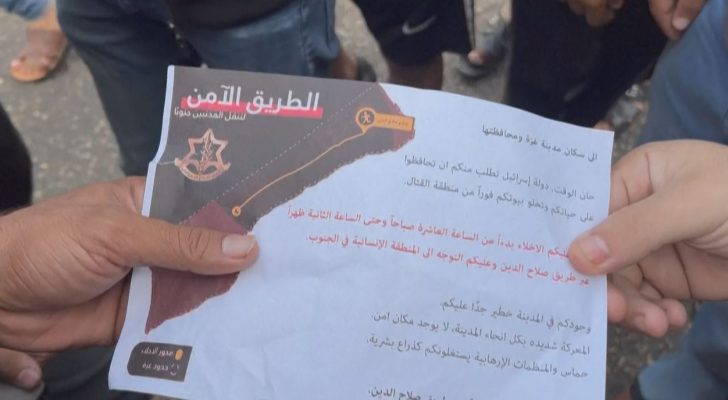 الطريق الآمن
لنقل المدنيين جنوبًا
الى سكان مدينة غزة ومحافظتها
حان الوقت. دولة إسرائيل تطلب منكم ان تحافظوا
على حياتكم وتخلو بيوتكم فوراً من منطقة القتال.
عليكم الاخلاء بدءاً من الساعة العاشرة صباحاً وحتى الساعة الثانية ظهراً
عبر طريق صلاح الدين وعليكم التوجه الى المنطقة الإنسانية في الجنوب.
وجودكم في المدينة خطير جدًا عليكم.
المعركة شديده بكل انحاء المدينة، لا يوجد مكان امن.
حماس والمنظمات الإرهابية يستغلونكم كذراع بشرية.
طريق صلاح الدين.
محور
حدود غزة